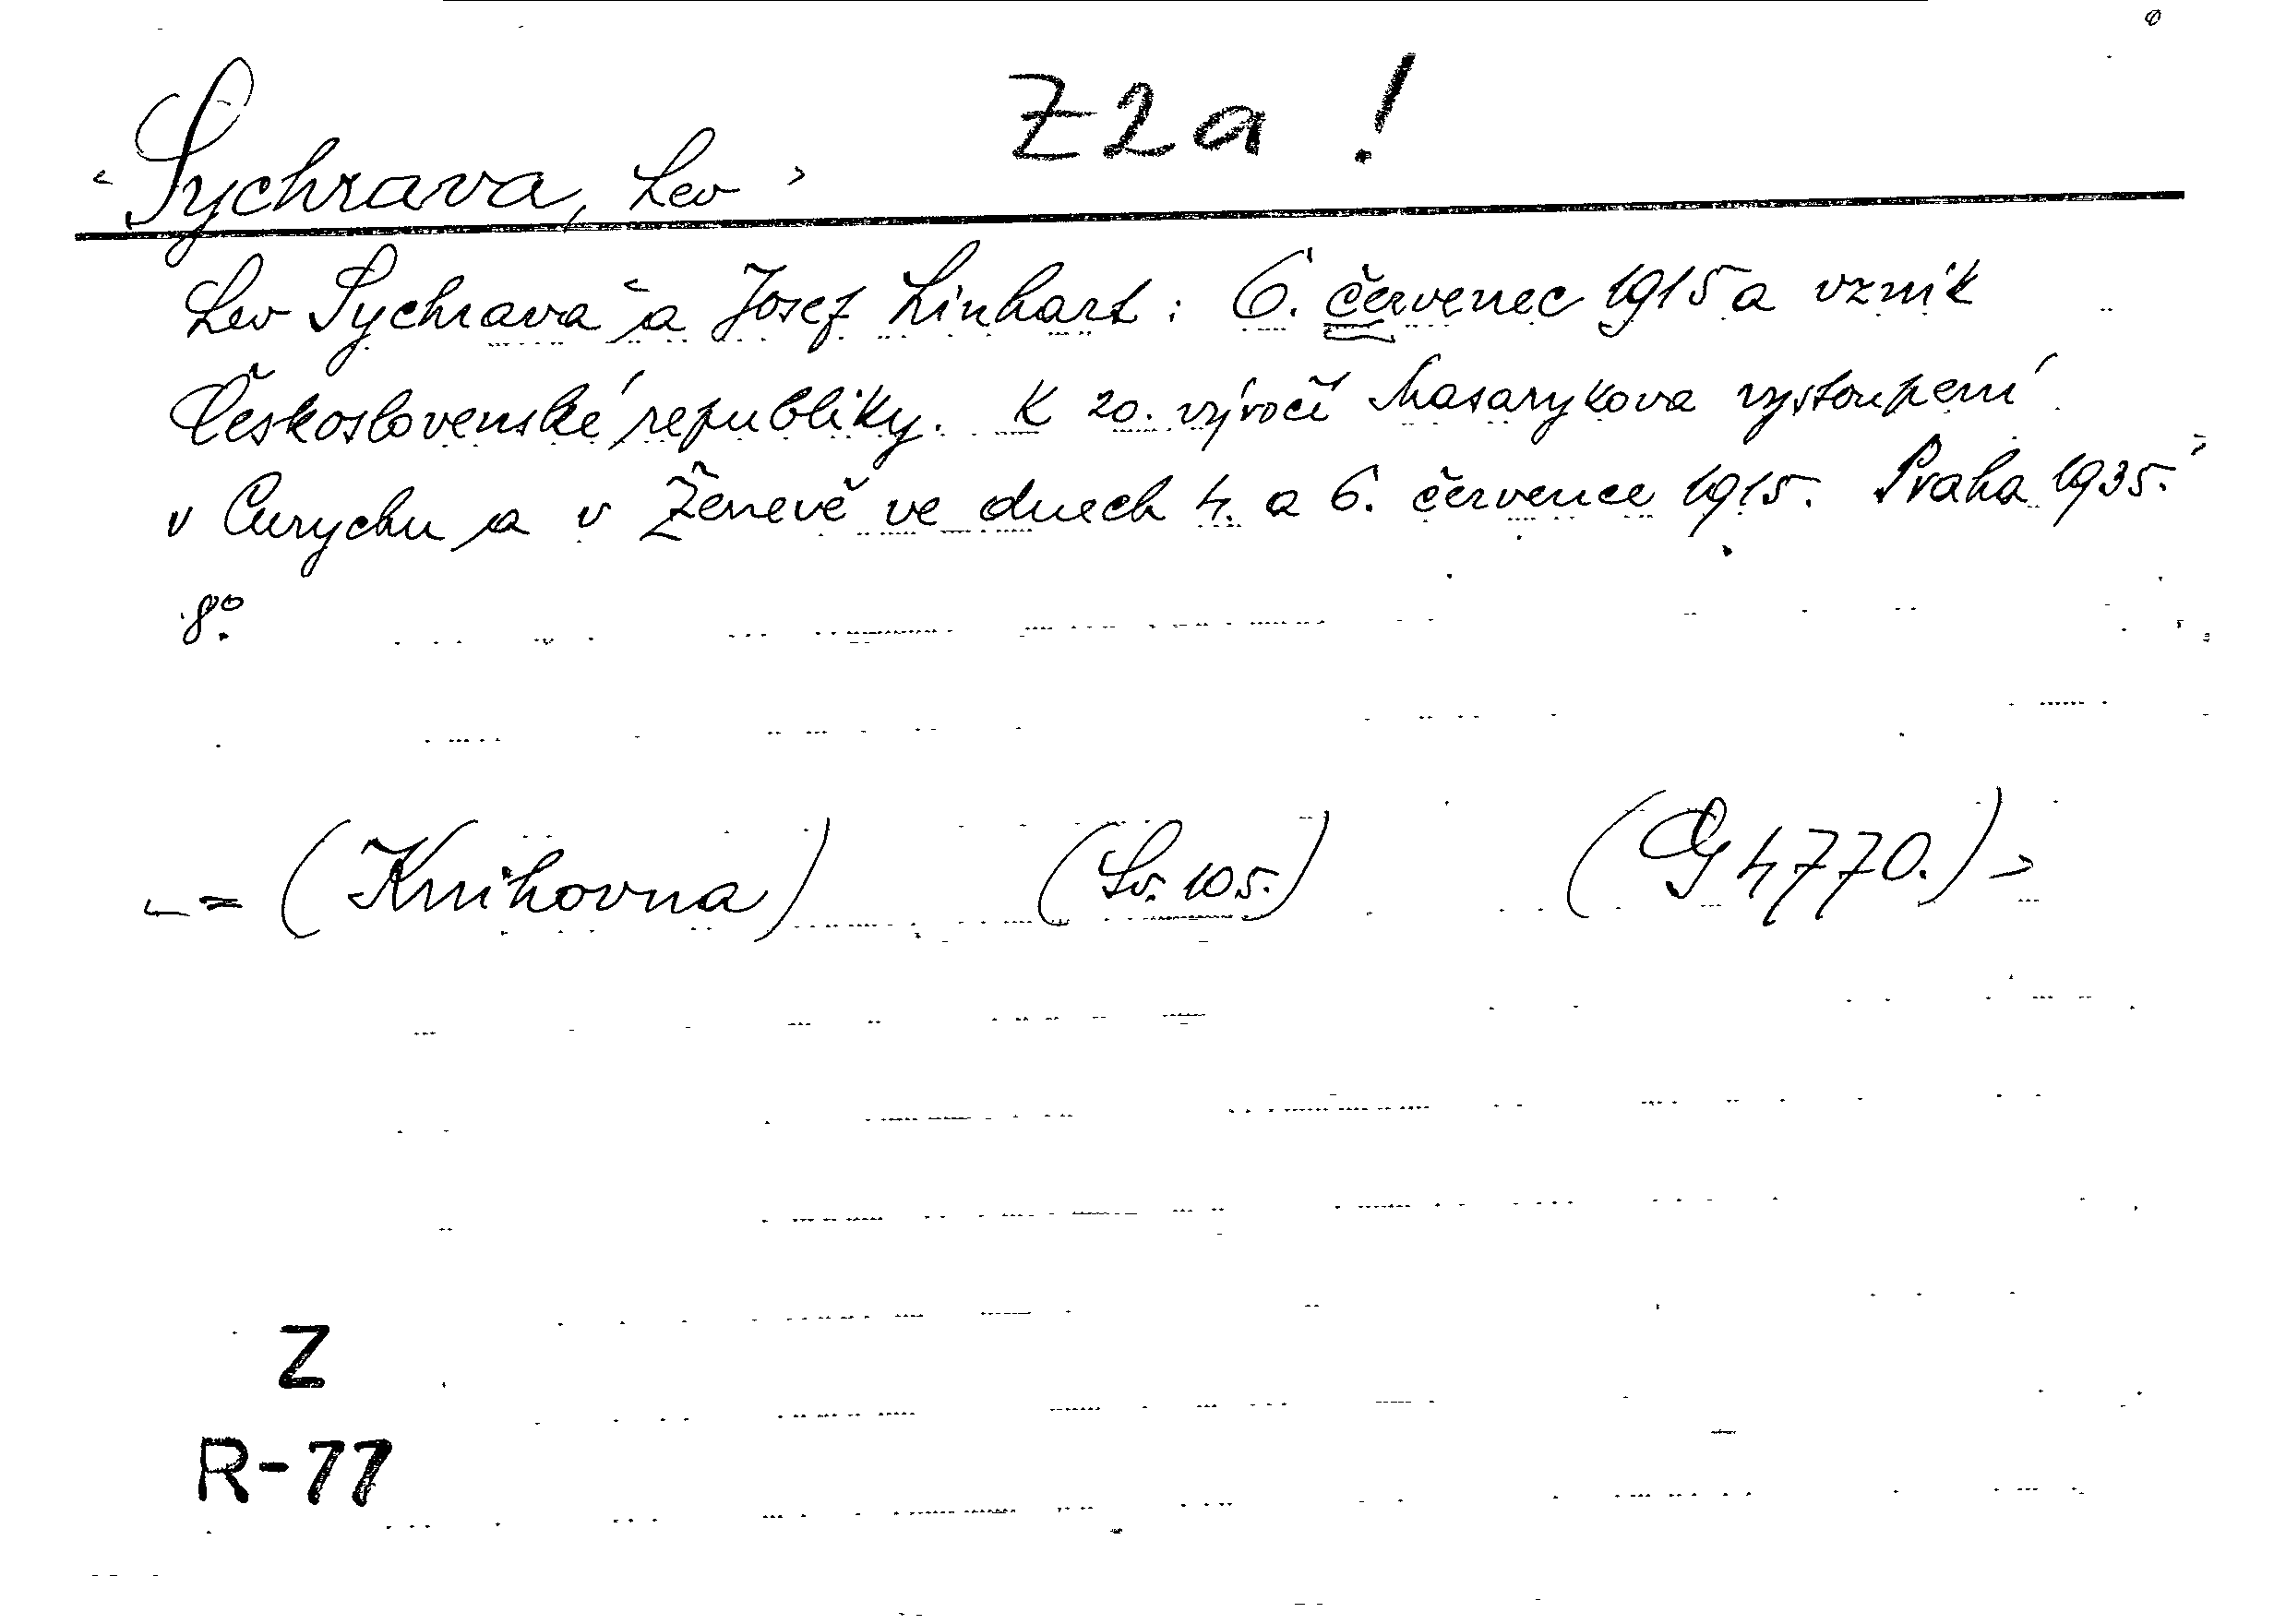 Z2a!
Sychrava, Lev
Lev Sychrava a Josef Linhart: 6. červenec 1915 a vznik
Československé republiky. K 20. výročí Masarykova vystoupení
v Curychu a v Ženevě ve dnech 4. a 6. července 1915. Praha 1935.
8°.
= (Knihovna) (Sv. 105.) (G 4770.)
Z
R-77